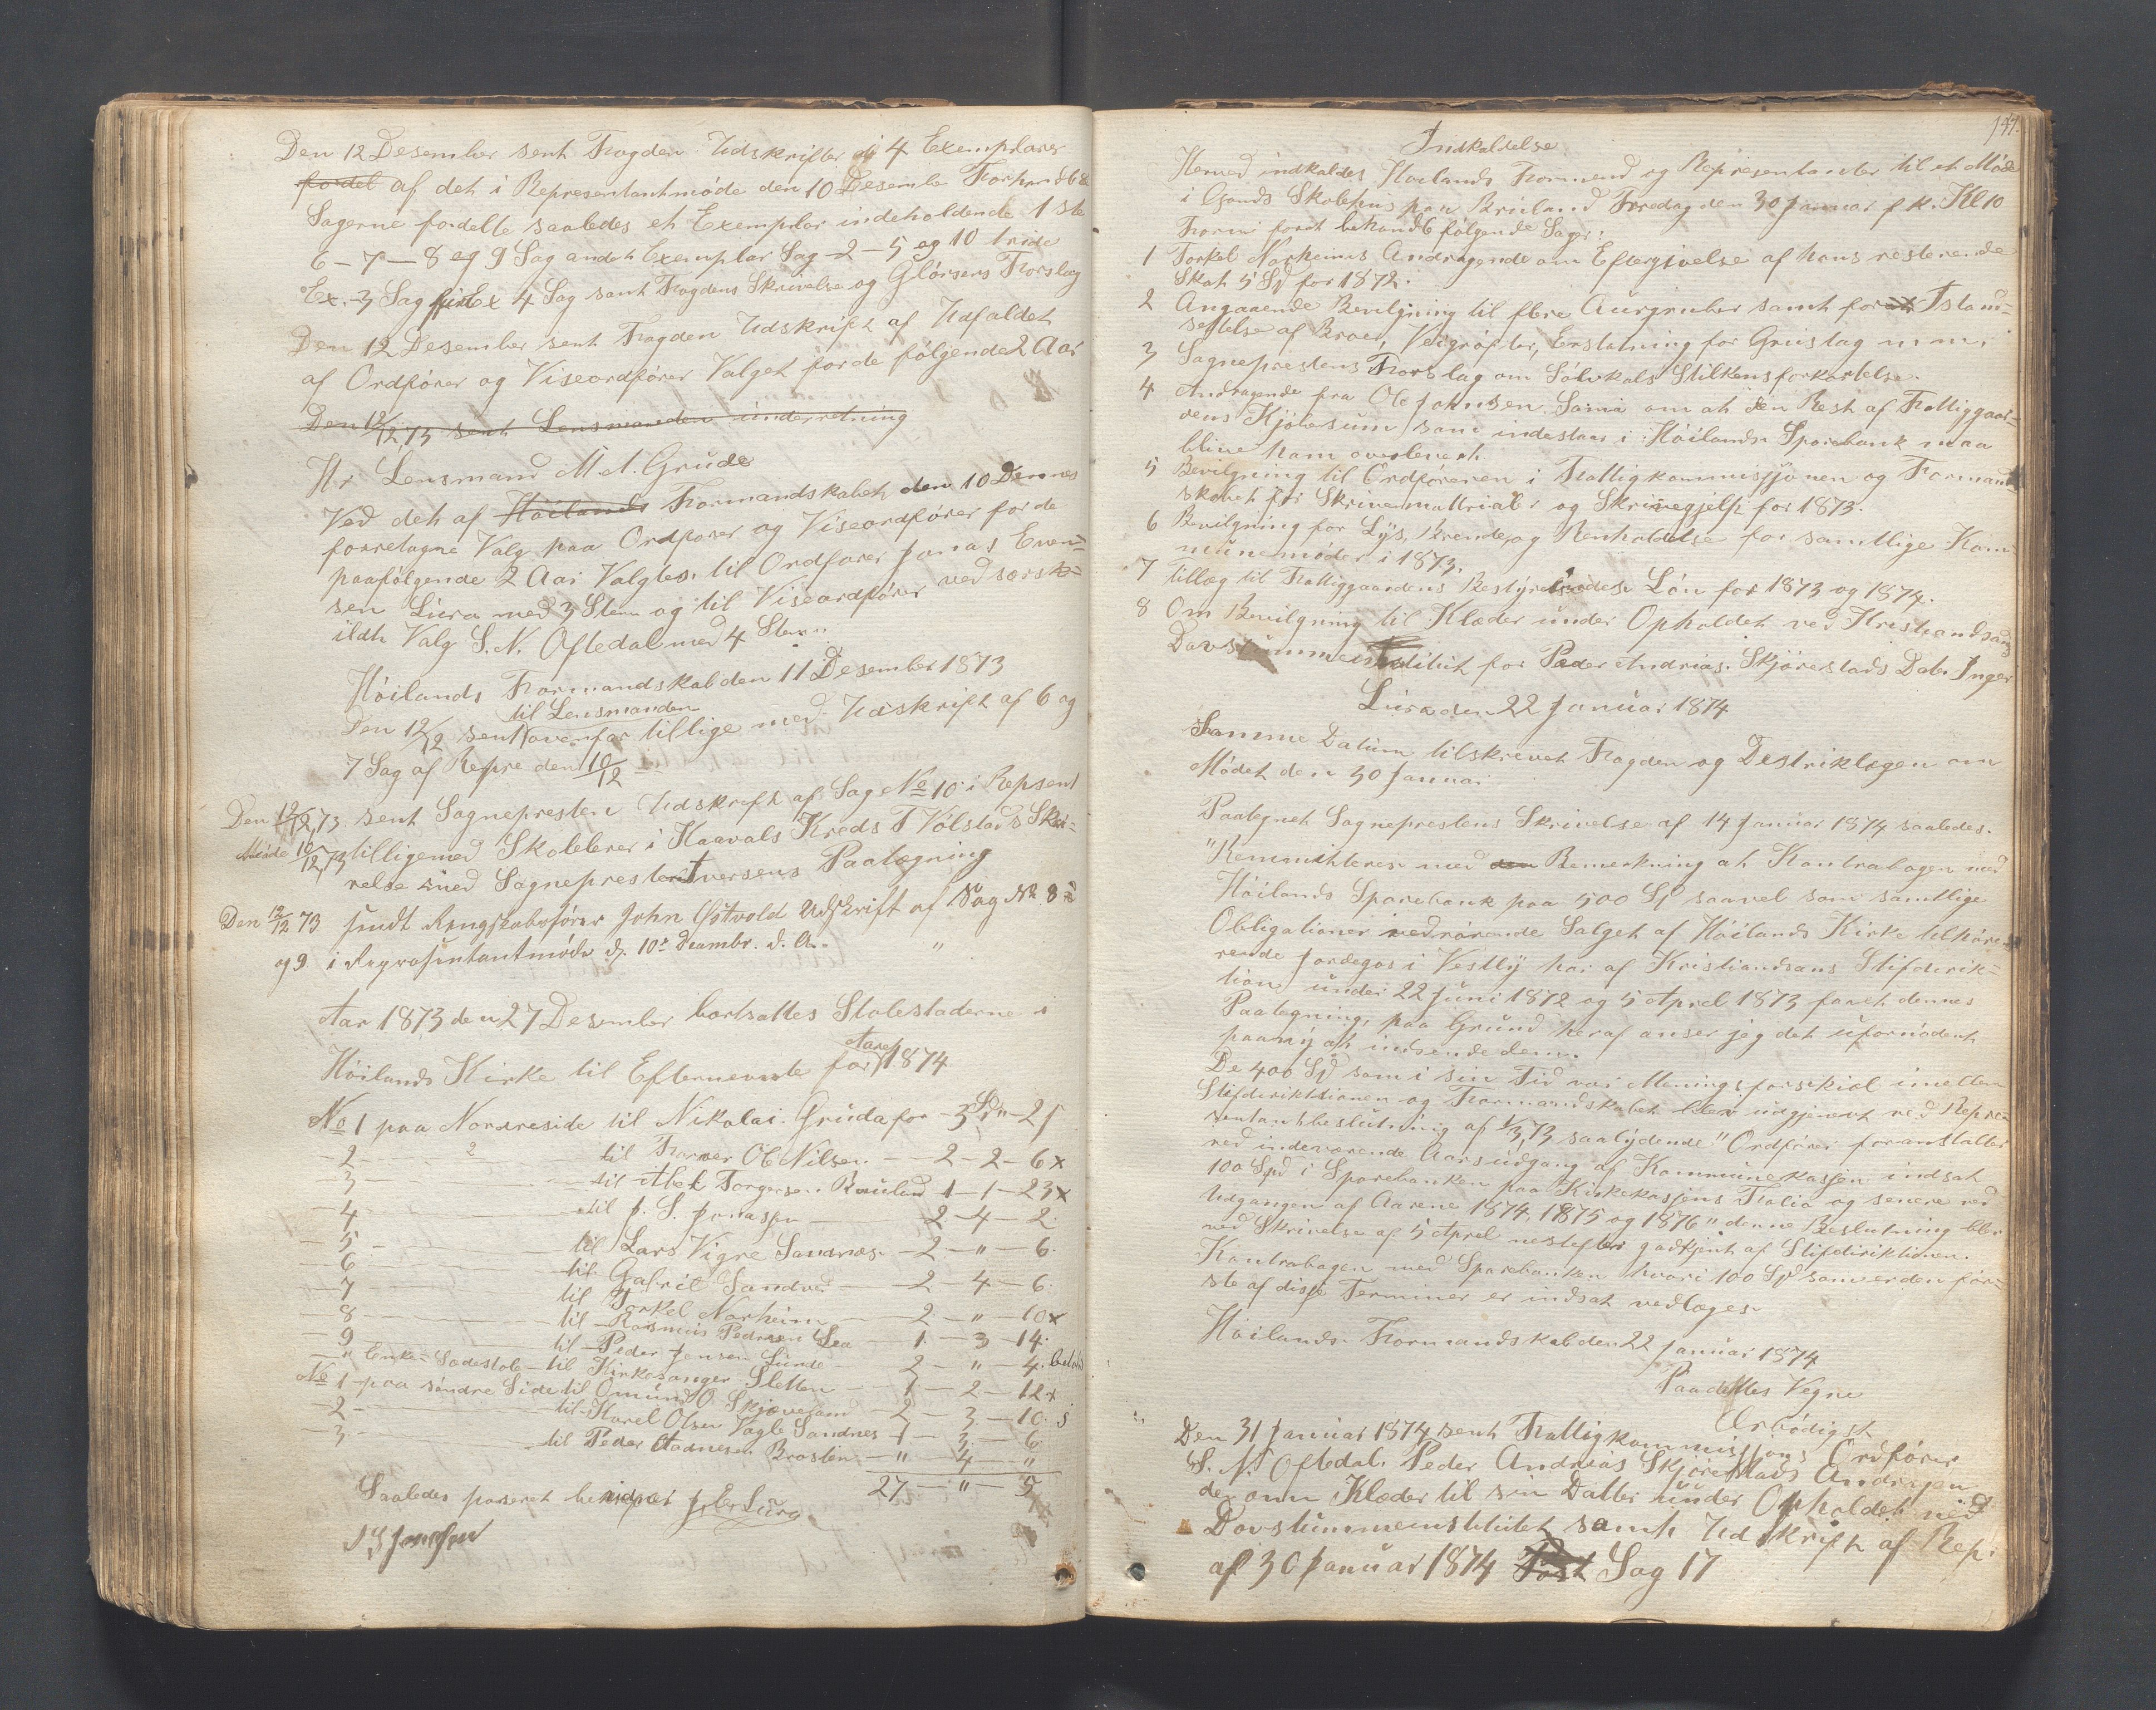 Den 12 Desember sent Fogden Udskrifter i 4 Exemplarer
fordel af det i Representantmøde den 10 Desember
Sagerne fordelte saaledes et Exemplar indeholdende 1ste
6 – 7 – 8 og 9 Sag andet Exemplar Sag 2 – 5 og 10 tride
Ex. 3 Sag Ex 4 Sag samt Fogdens Skrivelse og Glørsens Forslag
Den 12 Desember sent Fogden Udskrift af Udfaldet
af Ordfører og Viseordfører Valget for de følgende 2 Aar
Den 12/12 73 sent Lensmanden underretning
Hr Lensmand M A. Grude
Ved det af Høilands Formandskabet den 10 Dennes
foretagne Valg paa Ordførar og Viseordfører for de
paafølgende 2 Aar Valgtes til Ordfører Jonas Even-
sen Lura med 3 Stem og til Viseordfører ved sersk-
ildt Valg S. N. Oftedal med 4 Stem
Høilands Formandskab den 11 Desember 1873
til Lensmanden
Den 12/12 sent ovenfor tillige med Udskrift af 6 og
7 Sag af Repre den 10/12
Den 12/12 73 sent Sognepresten Udskrift af Sag No 10 i Repsent
Møde 10/12 73 tilligemed Skolelerer i Haavals Kreds T Vølstads Skri-
velse med Sogneprest Iversens Paategning
Den 12/12 73. sendt Regnskabsfører John Østvold Udskrift af Sag No 8
og 9 i Repræsentantmøde d. 10de Decembr. d. A. "
Aar 1873 den 27 Desember bortsattes Stolestaderne i
Høilands Kirke til Efternevnte for Aaret 1874
No 1 paa Norreside til Nikolai Gruda for – 3 Spd " – 21
– 2 – 2 til Former Ole Nilsen – 2 – 2 – 6 x
– 3 – til Abel Torgersen Bruland 1 – 1 – 23 x
– 4 – til J. S. Jonassen – 2 – 4 – 2
– 5 – til Lars Vigre Sandnes – 2 – " – 6
– 6 – til Gabriel Sandved – 2 – 4 – 6
– 7 – til Torkel Norheim – 2 – " – 10 x
– 8 – til Rasmus Pedersen Lea – 1 – 3 – 14
– 9 – til Peder Jensen Lunde – 2 – " – 4 betalt
– " Sædestole – til Kirkesanger Sletten – 1 – 2 – 12 x
No 1 paa søndre Side til Omund O Skjæveland – 2 – 3 – 10
– 2 – til Karel Olsen Vagle Sandnes – 1 – 3 – 6
– 3 – til Peder Aadnesen Brosten – " – 4 – "
27 – " – 5
Saaledes paseret J. Ev Lura
J S Jonassen
147.
Indkaldelse
Herved indkaldes Høilands Formend og Representanter til et Møde
i Gands Skolehus paa Brueland Fredag den 30 Januar f k. Kl 10
Form: forat behandle følgende Sager:
1 Torkel Norheims Andragende om Eftergivelse af hans resterende
Skat 5 Spd for 1872.
2 Angaaende Bevilgning til flere Aurgruber samt for Istand-
settelse af Broer, Veigrøfter, Erstatning for Grustag m m.
3 Sogneprestens Forslag om Sølvkals Stilkens forkortelse.
4 Andragende fra Ole Johnsen Soma om at den Rest af Fattiggaar-
dens Kjøbesum som indestaar i Høilands Sparebank maa
blive ham overleveret
5 Bevilgning til Ordføreren i Fattigkommissjonen og Formand
skabet for Skrivematrialer og Skrivegjelp for 1873.
6 Bevilgning for Lys, Brende og Renholdelse for samtlige Kom-
munemøder i 1873.
7 Tillæg til Fattiggaardens Bestyrelsesdes Løn for 1873 og 1874.
8 Om Bevilgning til Klæder under Opholdet ved Kristiandsans
Døvstummeinstitut for Peder Andrias Skjørestads Dater Inger
Lura den 22 Januar 1874
Samme Datum tilskrevet Fogden og Destriktlægen om
Mødet den 30 Januar.
Paategnet Sogneprestens Skrivelse af 14 Januar 1874 saaledes.
"Remmitteres med den Bemerkning at Kontrabogen med
Høilands Sparebank paa 500 Spd saavel som samtlige
Obligationer vedrørende Salget af Høilands Kirke tilhøre-
rende Jordegos i Vestly har af Kristiandsans Stifdirik-
tion under 22 Juni 1872 og 5 Aprel 1873 faaet dennes
Paategning, paa Grund heraf anser jeg det ufornødent
paany at indsende dem.
De 400 Spd som i sin Tid var Meningsforskiel imellem
Stifdiriktionen og Formandskabet blev udgjevet ved Repre-
sentantbeslutning af 1/3 73 saalydende "Ordfører foranstalter
ved indeværende Aars udgang af Kommunekassen indsat
100 Spd i Sparebanken paa Kirkekassens Folio og senere ved
Udgangen af Aarene 1874, 1875 og 1876" denne Beslutning blev
ved Skrivelse af 5 Aprel nestefter godkjent af Stifdiriktionen.
Kontrabogen med Sparebanken hvori 100 Spd som er den før-
ste af disse Terminer er indsat vedlæges.
Høilands Formandskab den 22 Januar 1874
Paa dettes Vegne
Ærbødigst
Den 31 Januar 1874 sent Fattigkommissjons Ordfører
S. N. Oftedal Peder Andrias Skjørestads Andragen
de om Klæder til sin Datter under Opholdet ved
Døvstummeinstitutet samt Udskrift af Rep:
af 30 Januar 1874 Post Sag 17